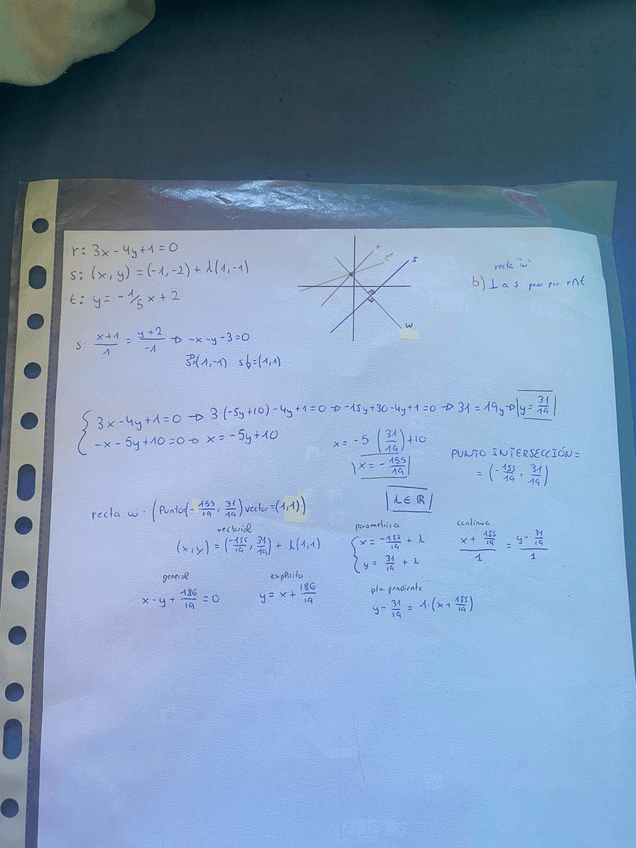 r: 3x-4y+1=0
s: (x,y)=(-1,-2)+λ(1,-1)
t: y=-1/5x+2
r
t
s
w
recta "w"
b) ⊥ a s pasa por r∩t
s: x+1/1 = y+2/-1 → -x-y-3=0
s⃗=(1,-1) s⃗⊥=(1,1)
{ 3x-4y+1=0 → 3·(-5y+10)-4y+1=0 → -15y+30-4y+1=0 → 31=19y → y=31/19
-x-5y+10=0 → x=-5y+10
x=-5(31/19)+10
x=-155/19
PUNTO INTERSECCIÓN=
=(-155/19, 31/19)
λ∈ℝ
recta w: (Punto(-155/19, 31/19) vector=(1,1))
vectorial
(x,y)=(-155/19, 31/19)+λ(1,1)
parametrica
{ x=-155/19+λ
y=31/19+λ
continua
x+155/19/1 = y-31/19/1
general
x-y+186/19=0
explícita
y=x+186/19
pto. pendiente
y-31/19=1·(x+155/19)